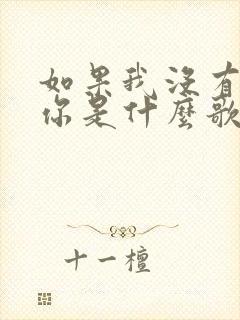 如果我没有
你是什麼歌
十一檀